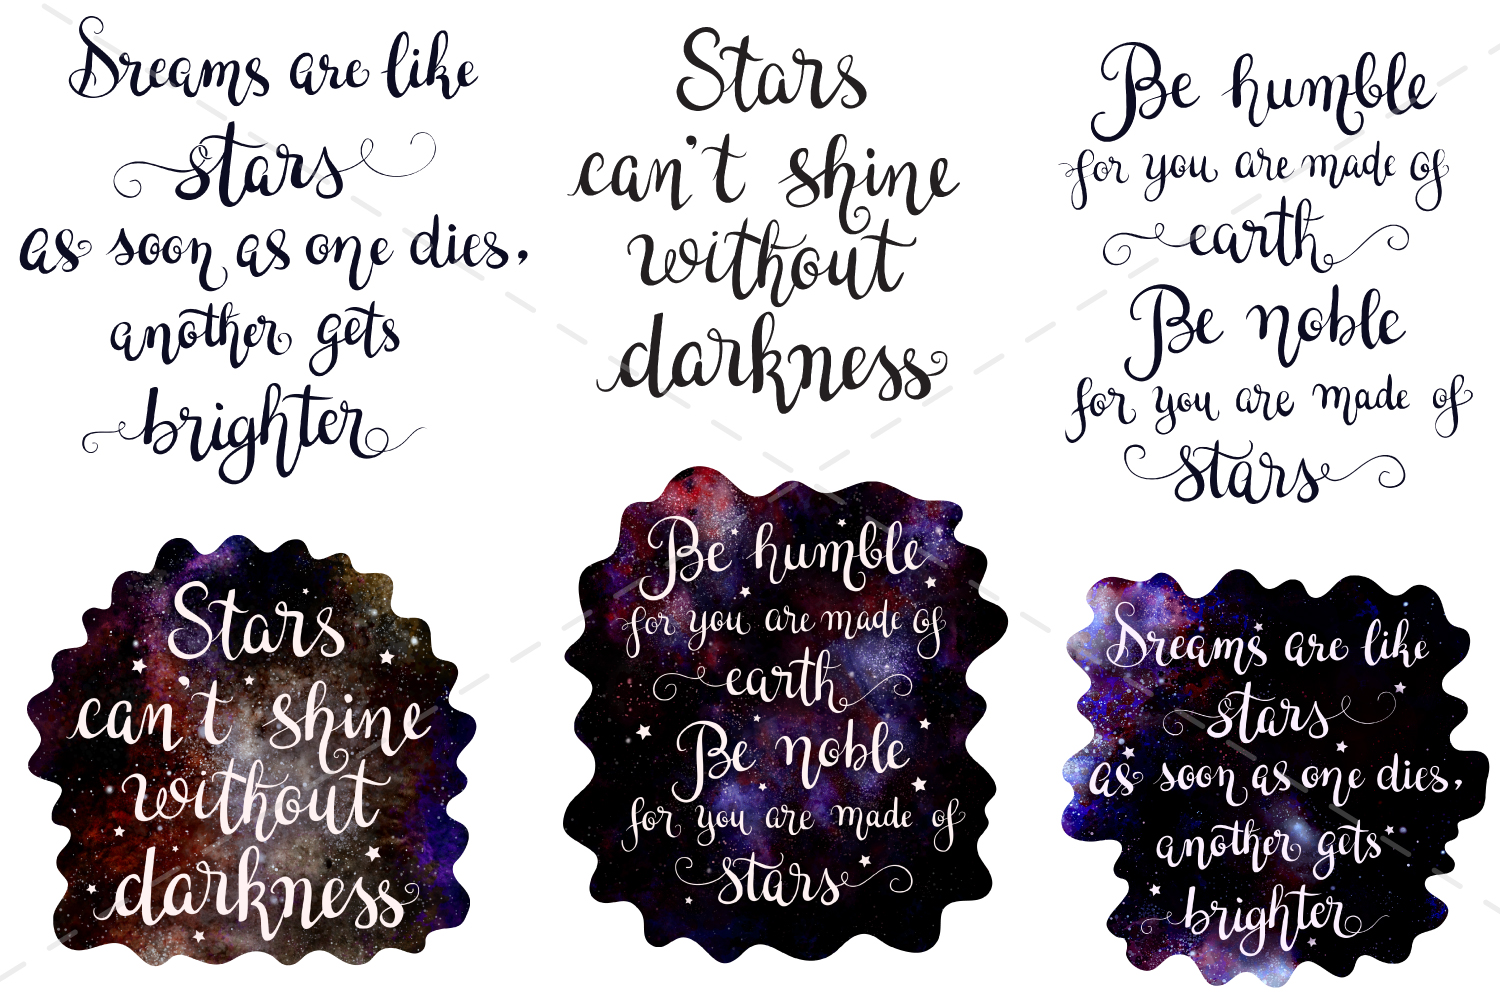 Dreams are like
stars
as soon as one dies,
another gets
brighter
Stars
can't shine
without
darkness
Be humble
for you are made of
earth
Be noble
for you are made of
stars
Stars
can't shine
without
darkness
Be humble
for you are made of
earth
Be noble
for you are made of
stars
Dreams are like
stars
as soon as one dies,
another gets
brighter